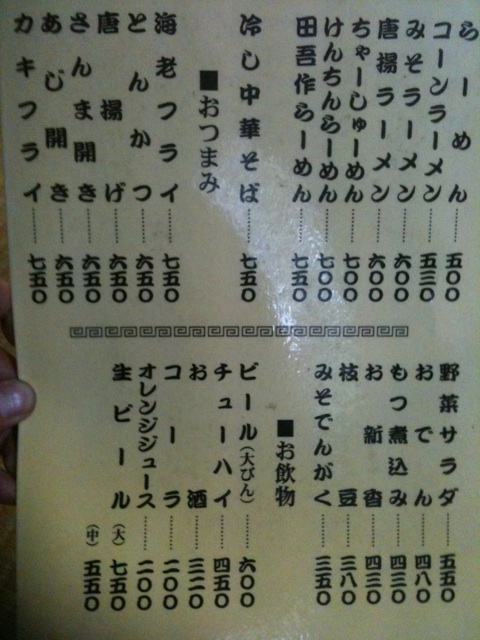 らーめん……五〇〇
コーンラーメン……五三〇
みそラーメン……六〇〇
唐揚ラーメン……六〇〇
ちゃーしゅーめん……七〇〇
けんちんらーめん……七〇〇
田吾作らーめん……七五〇
冷し中華そば……七五〇
■おつまみ
海老フライ……七五〇
とんかつ……六五〇
唐揚げ……六五〇
さんま開き……六五〇
あじ開き……六五〇
カキフライ……七五〇
野菜サラダ……五五〇
おでん……四八〇
もつ煮込み……四三〇
お新香……四三〇
枝豆……三八〇
みそでんがく……三五〇
■お飲物
ビール(大びん)……六〇〇
チューハイ……四五〇
お酒……三二〇
コーラ……二〇〇
オレンジジュース……二〇〇
生ビール(大)……七五〇
(中)……五五〇